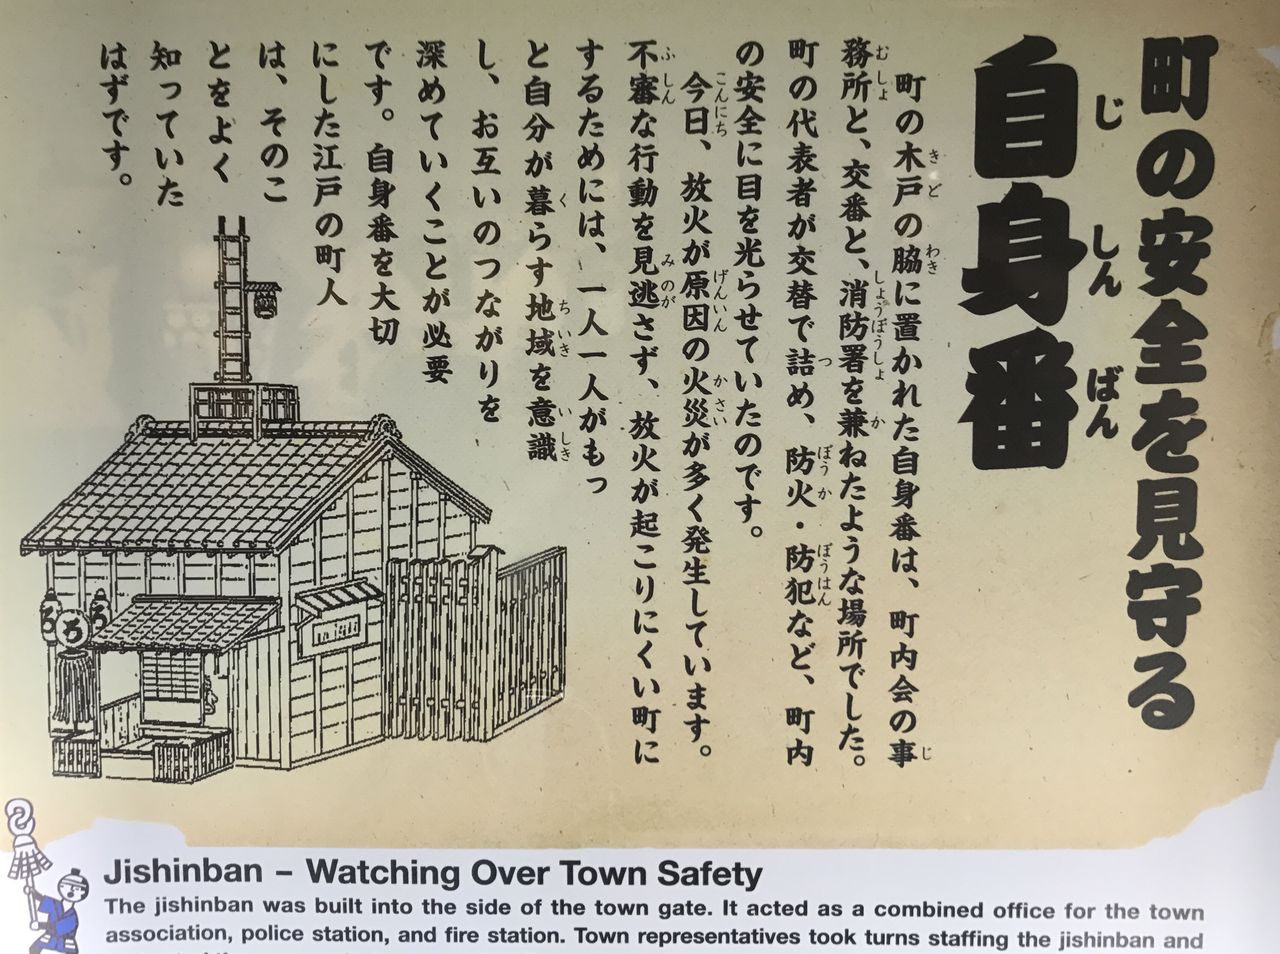 町の安全を見守る
自身番
じしんばん
町の木戸の脇に置かれた自身番は、町内会の事
務所と、交番と、消防署を兼ねたような場所でした。
町の代表者が交替で詰め、防火・防犯など、町内
の安全に目を光らせていたのです。
今日、放火が原因の火災が多く発生しています。
不審な行動を見逃さず、放火が起こりにくい町に
するためには、一人一人がもっ
と自分が暮らす地域を意識
し、お互いのつながりを
深めていくことが必要
です。自身番を大切
にした江戸の町人
は、そのこ
とをよく
知っていた
はずです。
きど
わき
じ
むしょ
しょうぼうしょ
か
つ
ぼうか
ぼうはん
こんにち
げんいん
かさい
ふしん
みのが
く
ちいき
いしき
ろ
ろ
ろ
Jishinban – Watching Over Town Safety
The jishinban was built into the side of the town gate. It acted as a combined office for the town
association, police station, and fire station. Town representatives took turns staffing the jishinban and